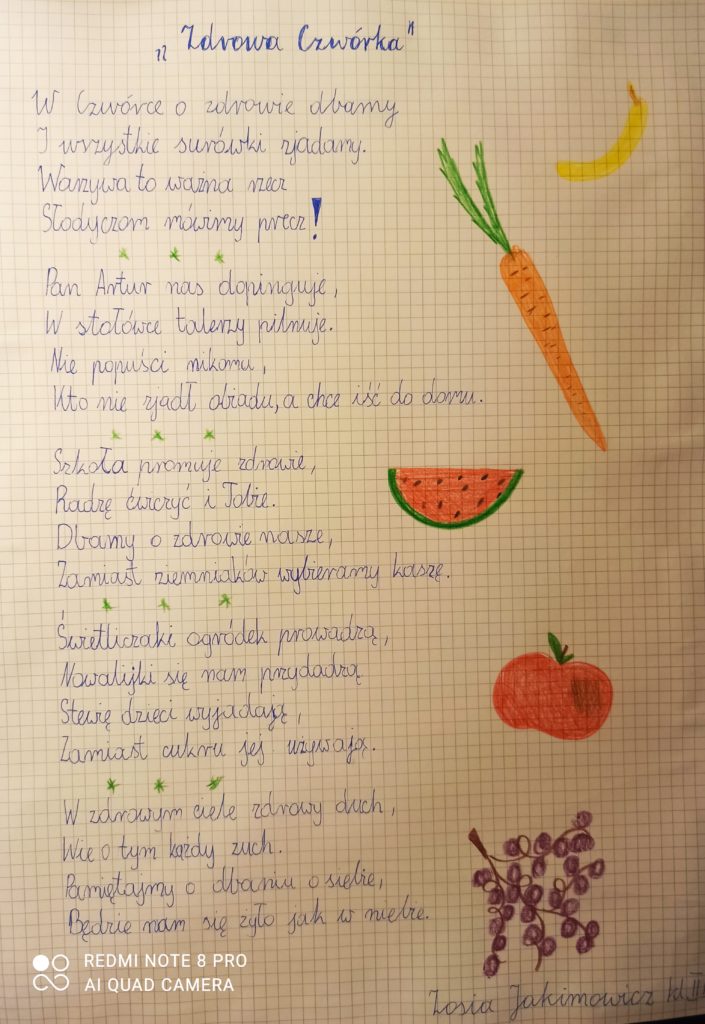 „Zdrowa Czwórka"
W Czwórce o zdrowie dbamy
I wszystkie surówki zjadamy.
Warzywa to ważna rzecz
Słodyczom mówimy precz!
* * *
Pan Artur nas dopinguje,
W stołówce talerzy pilnuje.
Nie popuści nikomu,
Kto nie zjadł obiadu, a chce iść do domu.
* * *
Szkoła promuje zdrowie,
Radzę ćwiczyć i Tobie.
Dbamy o zdrowie nasze,
Zamiast ziemniaków wybieramy kaszę.
* * *
Świetliczaki ogródek prowadzą,
Nowalijki się nam przydadzą
Stewię dzieci wyjadają,
Zamiast cukru jej używają.
* * *
W zdrowym ciele zdrowy duch,
Wie o tym każdy zuch.
Pamiętajmy o dbaniu o siebie,
Będzie nam się żyło jak w niebie.
Zosia Jakimowicz kl.
REDMI NOTE 8 PRO
AI QUAD CAMERA